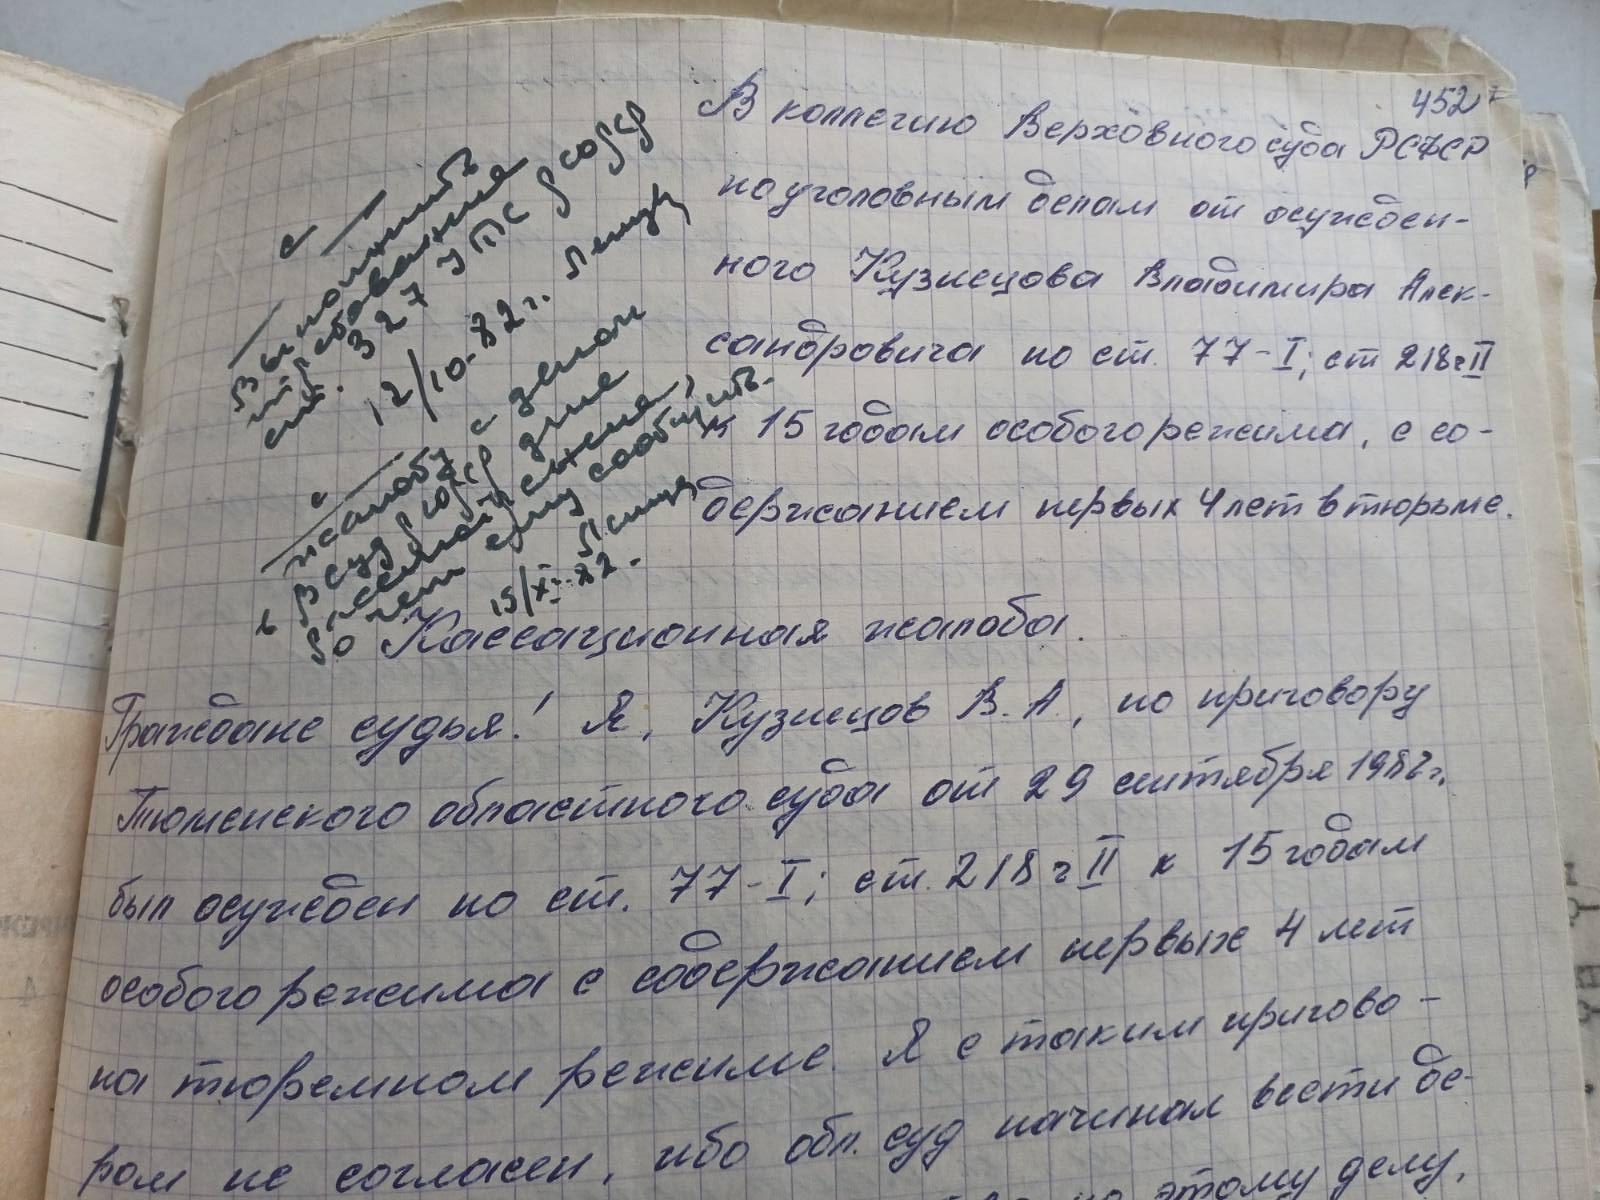 452
В коллегию Верховного суда РСФСР
по уголовным делам от осужден-
ного Кузнецова Владимира Алек-
сандровича по ст. 77-I; ст 218 ч II
к 15 годам особого режима, с со-
держанием первых 4 лет в тюрьме.
Выполнить
требования
ст. 327 УПК РСФСР
12/10-82 г.
с
жалобу с делом
в Суд РСФСР для
о чем ему сообщить.
15/XI-82.
Кассационная жалоба.
Граждане судья! Я, Кузнецов В. А., по приговору
Тюменского областного суда от 29 сентября 1982 г.
был осужден по ст. 77-I; ст. 218 ч II к 15 годам
особого режима с содержанием первых 4 лет
на тюремном режиме. Я с таким пригово-
ром не согласен, ибо обл. суд начинал вести де-
по этому делу,